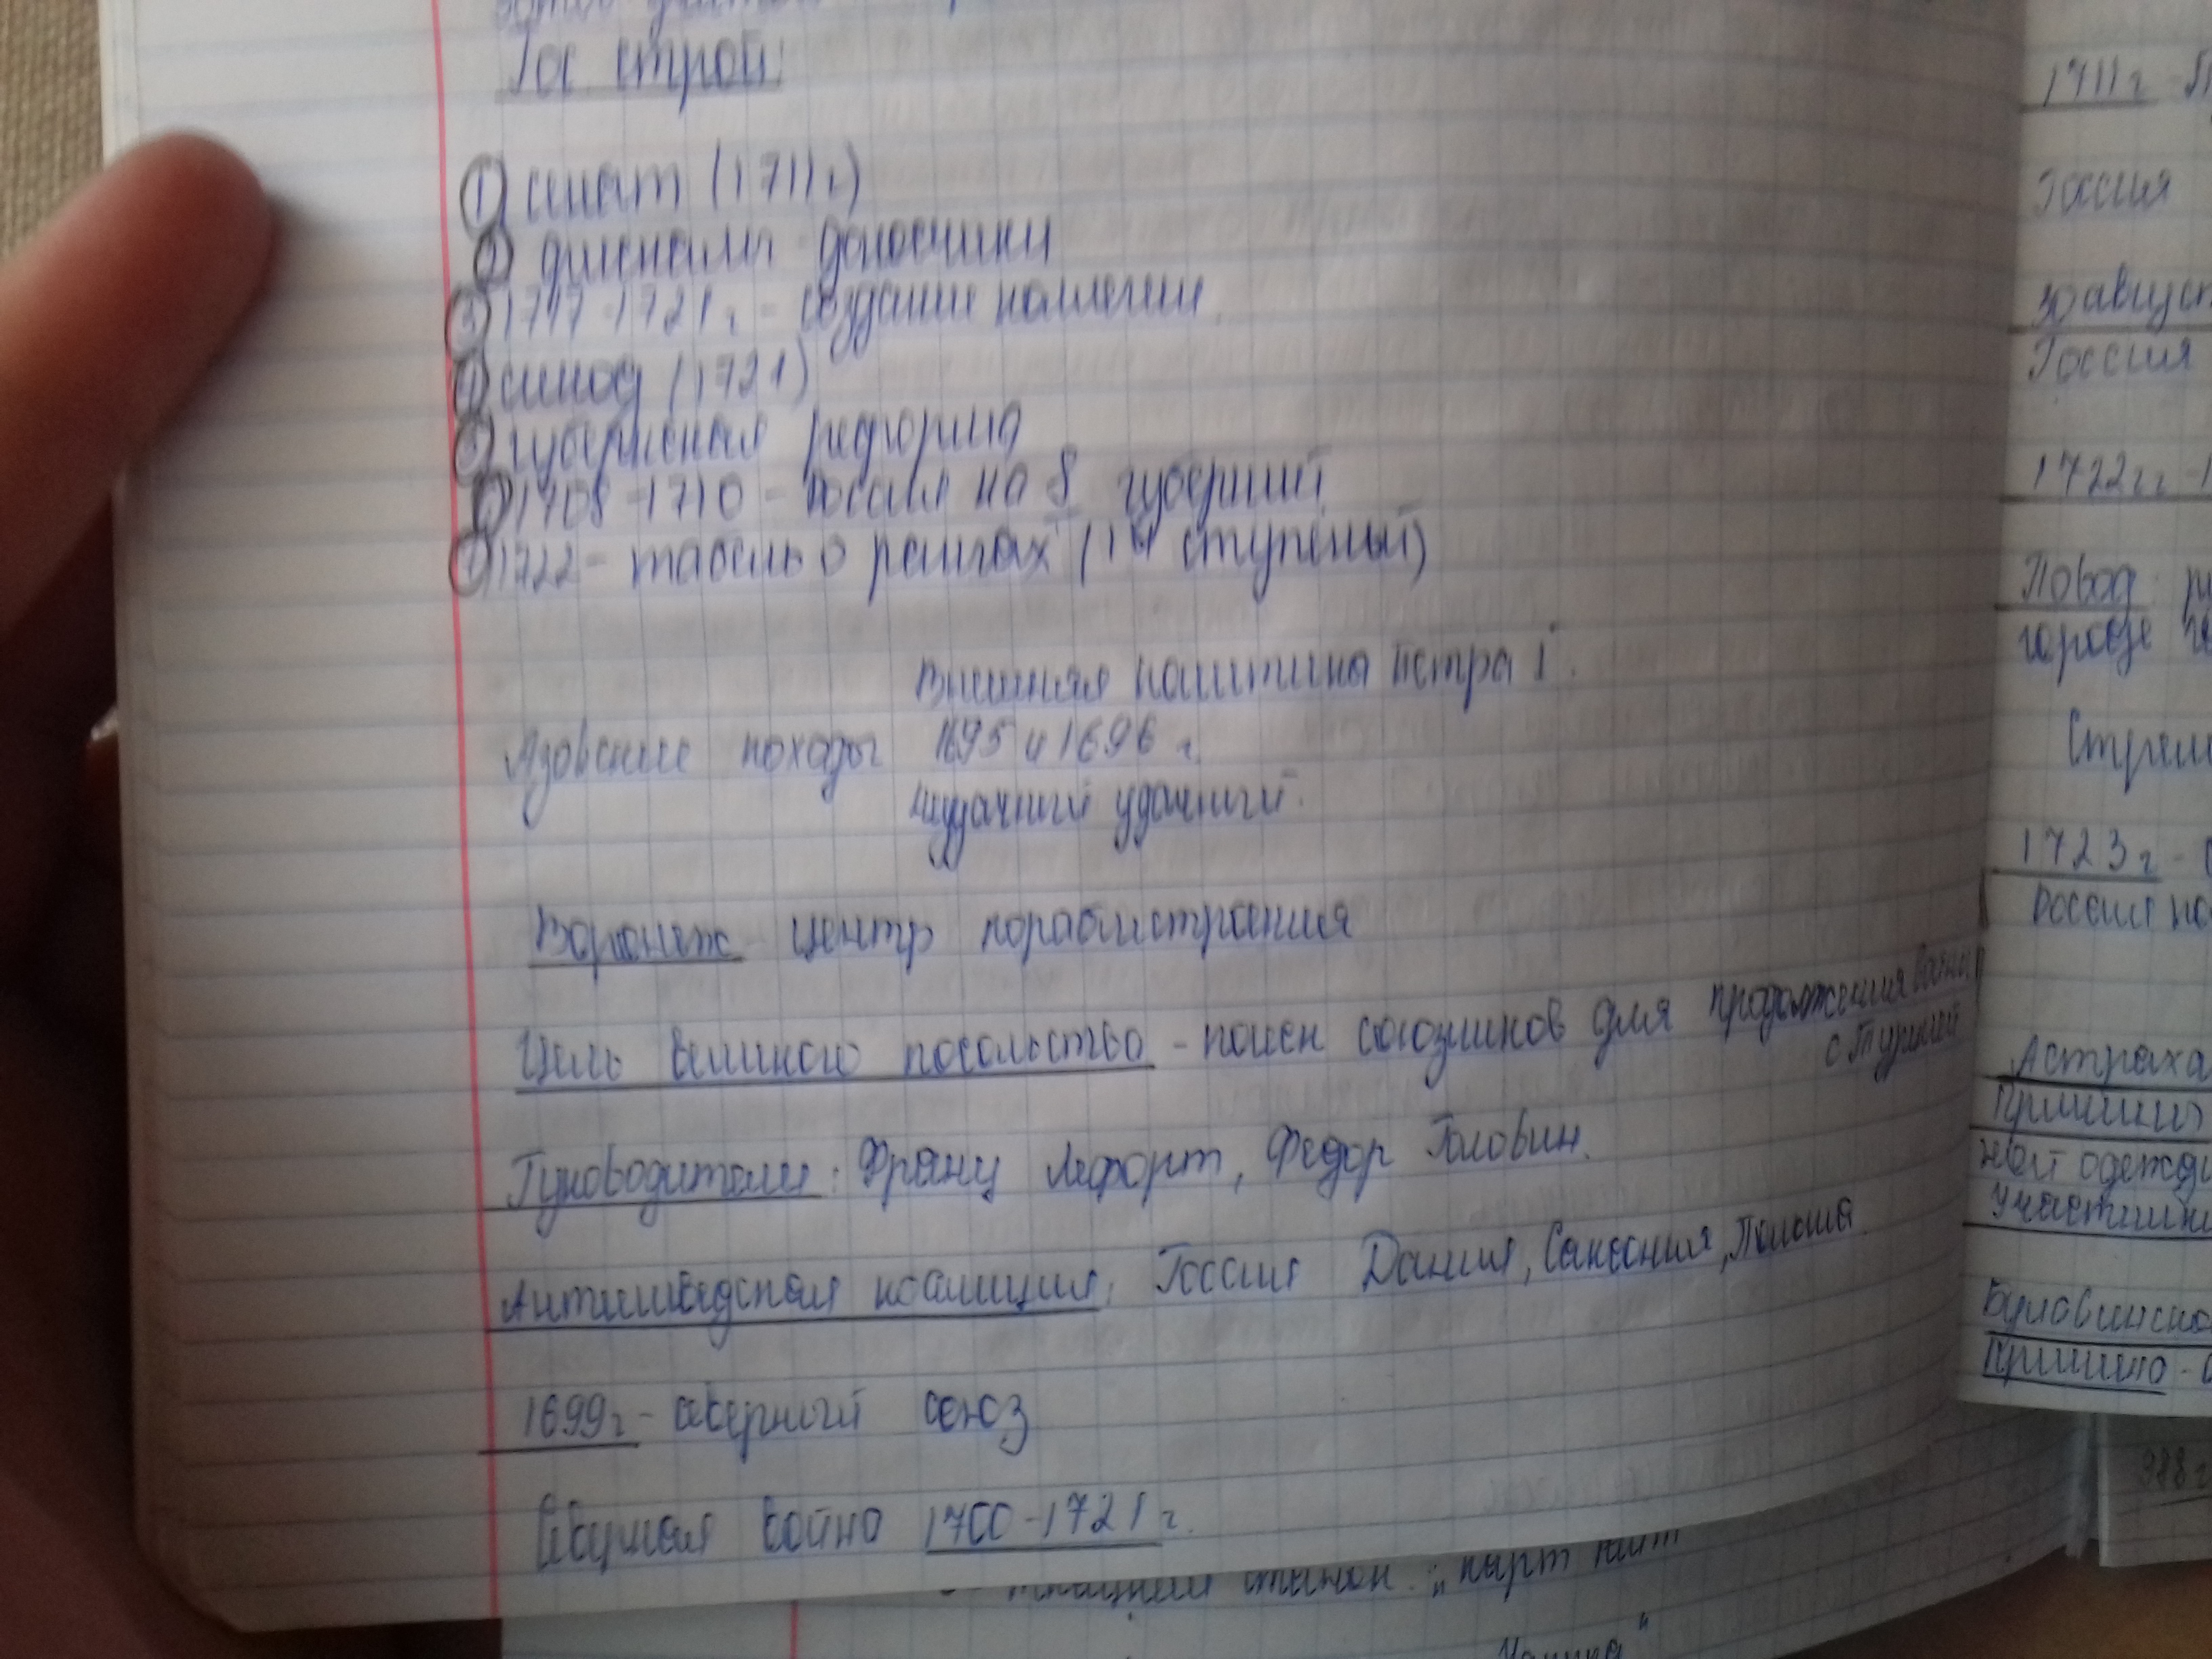 Гос. строй:
① сенат (1711г)
② фискалы - доносчики
③ 1717-1721г - создание коллегий.
④ синод (1721)
⑤ губернская реформа
⑥ 1708-1710 - Россия на 8 губерний
⑦ 1722 - табель о рангах (14 ступеный)
Внешняя политика Петра I.
Азовские походы 1695 и 1696 г.
неудачный удачный.
Воронеж - центр кораблистроения
Цель великого посольство - поиск союзников для продолжения войны
с Турцией
Руководители: Франц Лефорт, Федор Головин.
Антишведская коалиция: Россия Дания, Саксония, Польша.
1699г - северный союз
война 1700-1721г.
1711г -
Россия
30 август
Россия
1722гг -
Повод
городе
Стрель
1723г -
Россия
Астраха
Причины
ной одежды
Участники
Булавинско
Причина -
988г
станок "